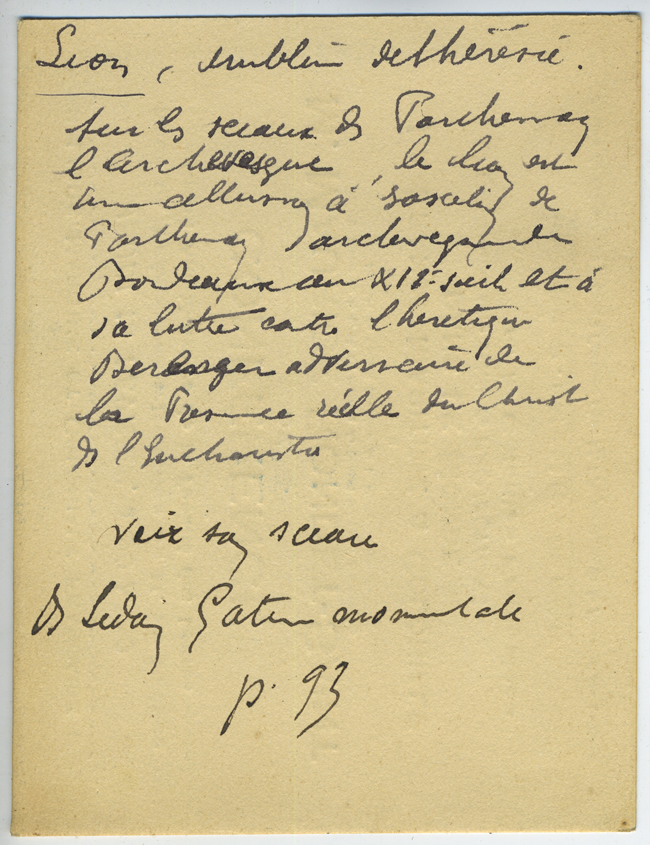 Lion, emblème de l'hérésie.
sur les sceaux de Parthenay
l'archevesque, le lion est
une allusion à Joscelin de
Parthenay archevêque de
Bordeaux au XIe siècle et à
sa lutte contre l'hérétique
Berenger adversaire de
la Présence réelle du Christ
ds l'Eucharistie
voir son sceau
ds Ledain Gatine monumentale
p. 93